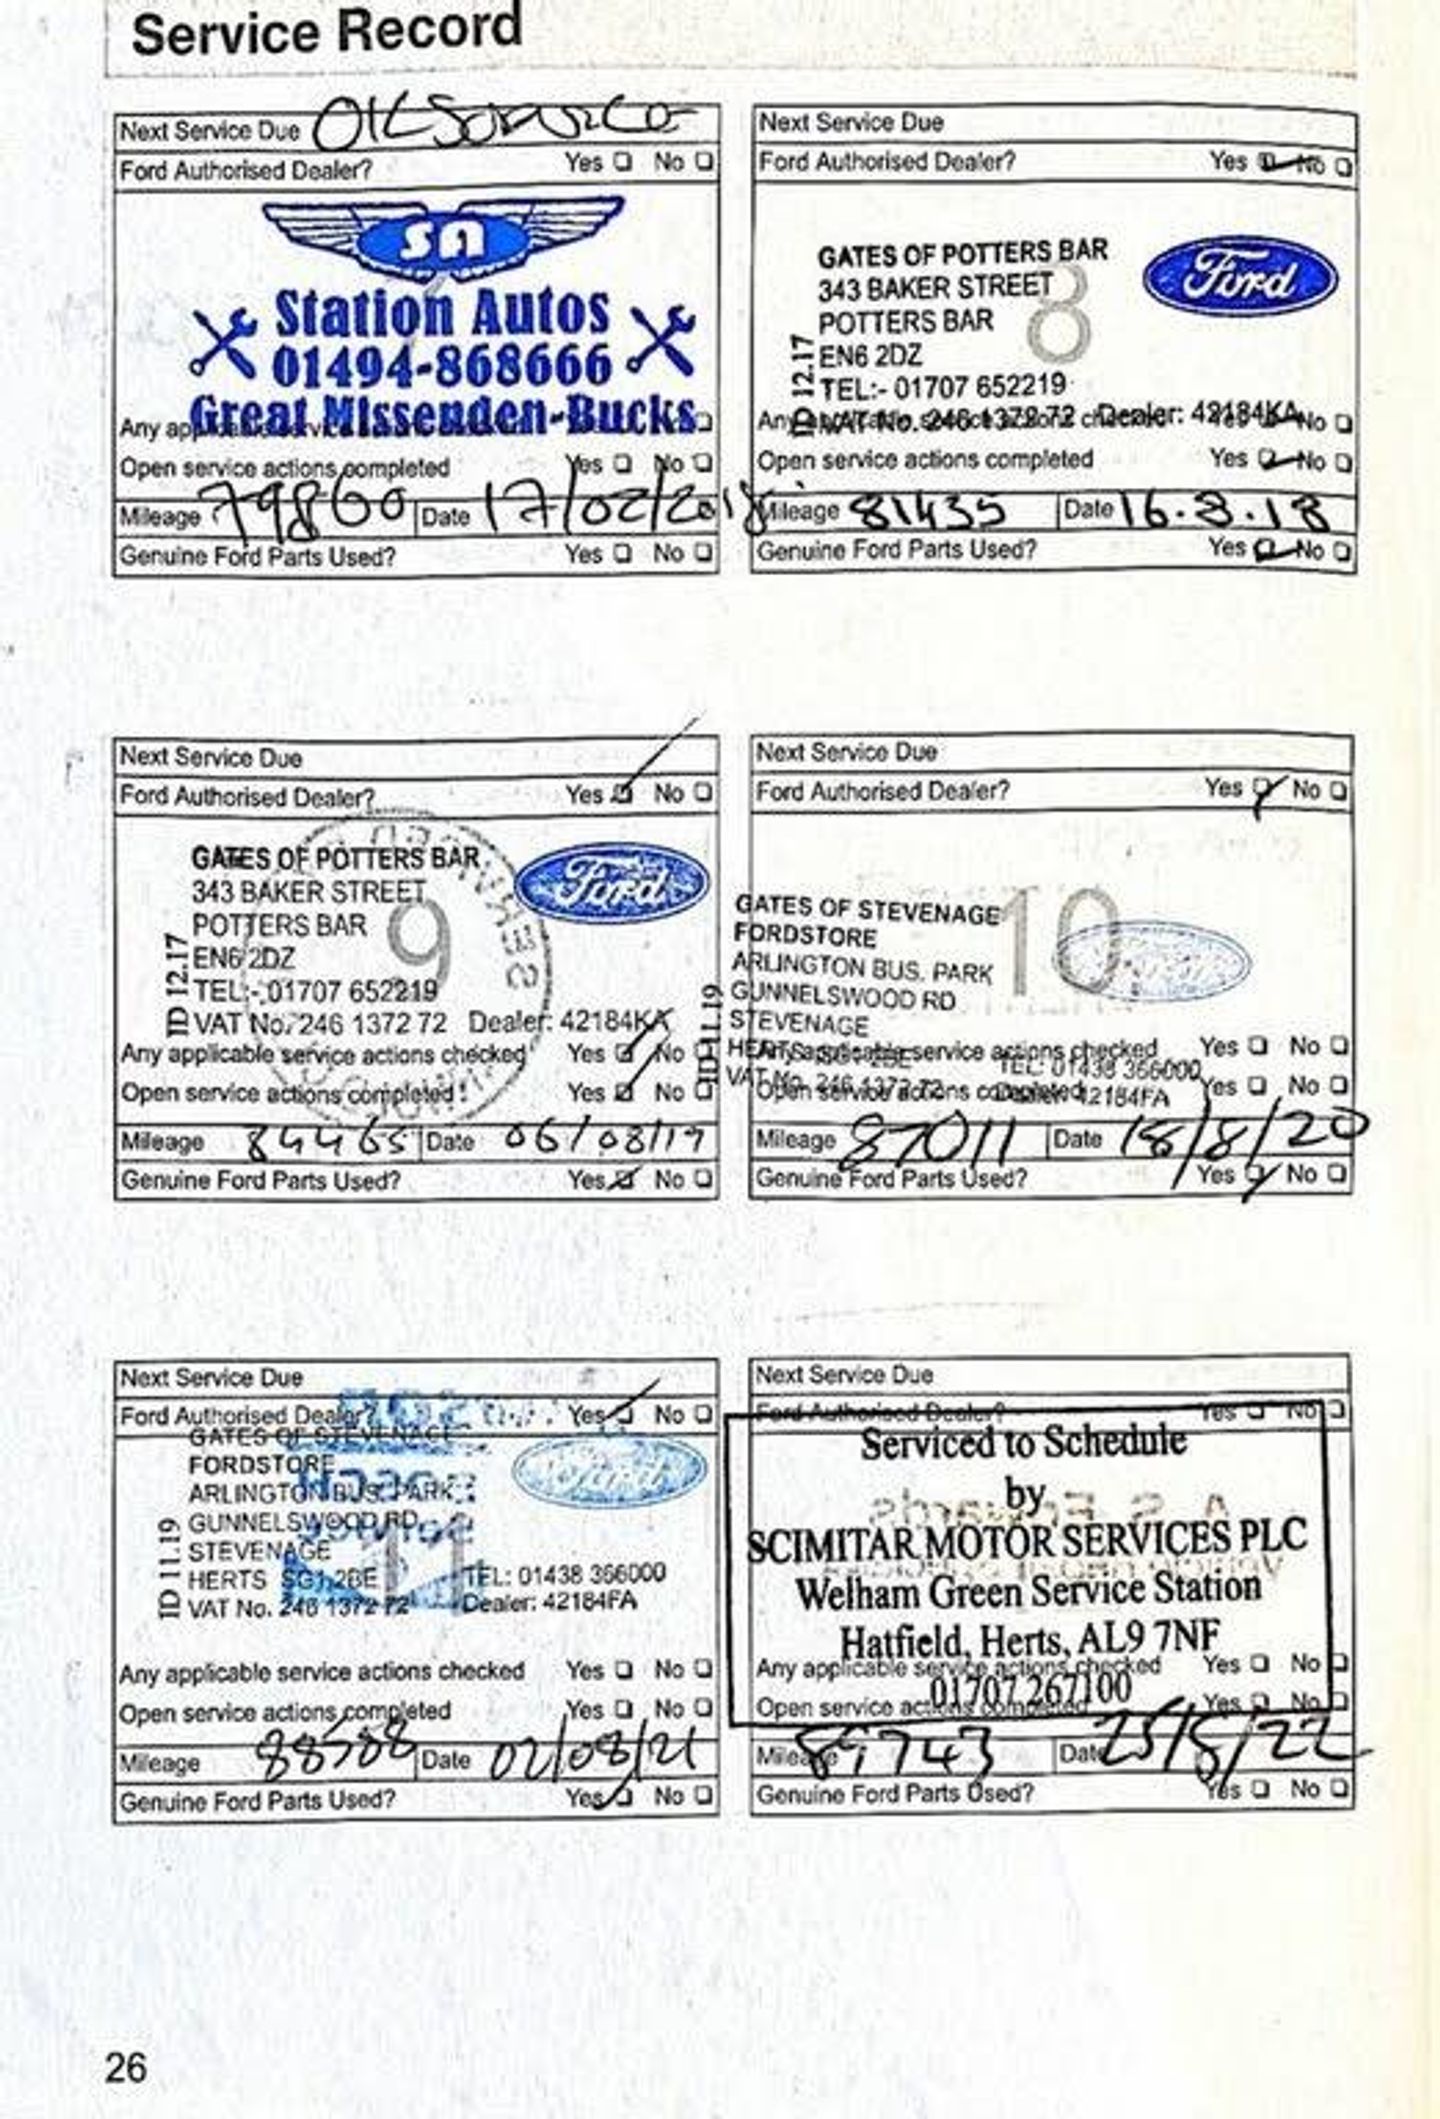 Service Record
Next Service Due OIL SERVICE
Ford Authorised Dealer? Yes No
SA
Station Autos
01494-868666
Great Missenden-Bucks
Any applicable service
Open service actions completed Yes No
Mileage 79860 Date 17/02/2018
Genuine Ford Parts Used? Yes No
Next Service Due
Ford Authorised Dealer? Yes No
GATES OF POTTERS BAR
Ford
343 BAKER STREET
8
POTTERS BAR
EN6 2DZ
TEL:- 01707 652219
ID 12.17
VAT No. 246 1372 72 Dealer: 42184KA
Any applicable service actions checked Yes No
Open service actions completed Yes No
Mileage 81435 Date 16.8.18
Genuine Ford Parts Used? Yes No
Next Service Due
Ford Authorised Dealer? Yes No
GATES OF POTTERS BAR
Ford
343 BAKER STREET
9
POTTERS BAR
EN6 2DZ
TEL:- 01707 652219
ID 12.17
VAT No. 246 1372 72 Dealer: 42184KA
Any applicable service actions checked Yes No
Open service actions completed Yes No
Mileage 84465 Date 06/08/19
Genuine Ford Parts Used? Yes No
Next Service Due
Ford Authorised Dealer? Yes No
10
GATES OF STEVENAGE
FORDSTORE
Ford
ARLINGTON BUS. PARK
GUNNELSWOOD RD
STEVENAGE
ID 11.19
HERTS
TEL: 01438 366000
VAT No. 246 1372 72 Dealer: 42184FA
Any applicable service actions checked Yes No
Open service actions completed Yes No
Mileage 87011 Date 18/8/20
Genuine Ford Parts Used? Yes No
Next Service Due
Ford Authorised Dealer? Yes No
GATES OF STEVENAGE
FORDSTORE
Ford
ARLINGTON BUS. PARK
GUNNELSWOOD RD
11
STEVENAGE
HERTS SG1 2BE TEL: 01438 366000
ID 11.19
VAT No. 246 1372 72 Dealer: 42184FA
Any applicable service actions checked Yes No
Open service actions completed Yes No
Mileage 88588 Date 02/08/21
Genuine Ford Parts Used? Yes No
Next Service Due
Ford Authorised Dealer? Yes No
Serviced to Schedule
by
SCIMITAR MOTOR SERVICES PLC
Welham Green Service Station
Hatfield, Herts, AL9 7NF
01707 267100
Any applicable service actions checked Yes No
Open service actions completed Yes No
Mileage 89743 Date 25/5/22
Genuine Ford Parts Used? Yes No
26